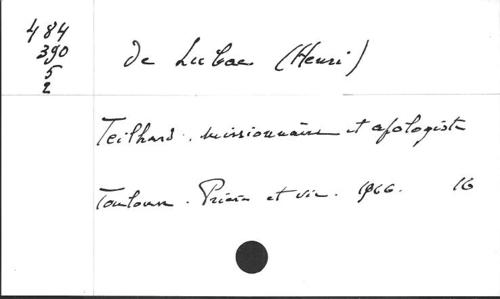 484
390
5
2
de Lubac (Henri)
Teilhard. missionnaire et apologiste
Toulouse. Prière et vie. 1966. 16